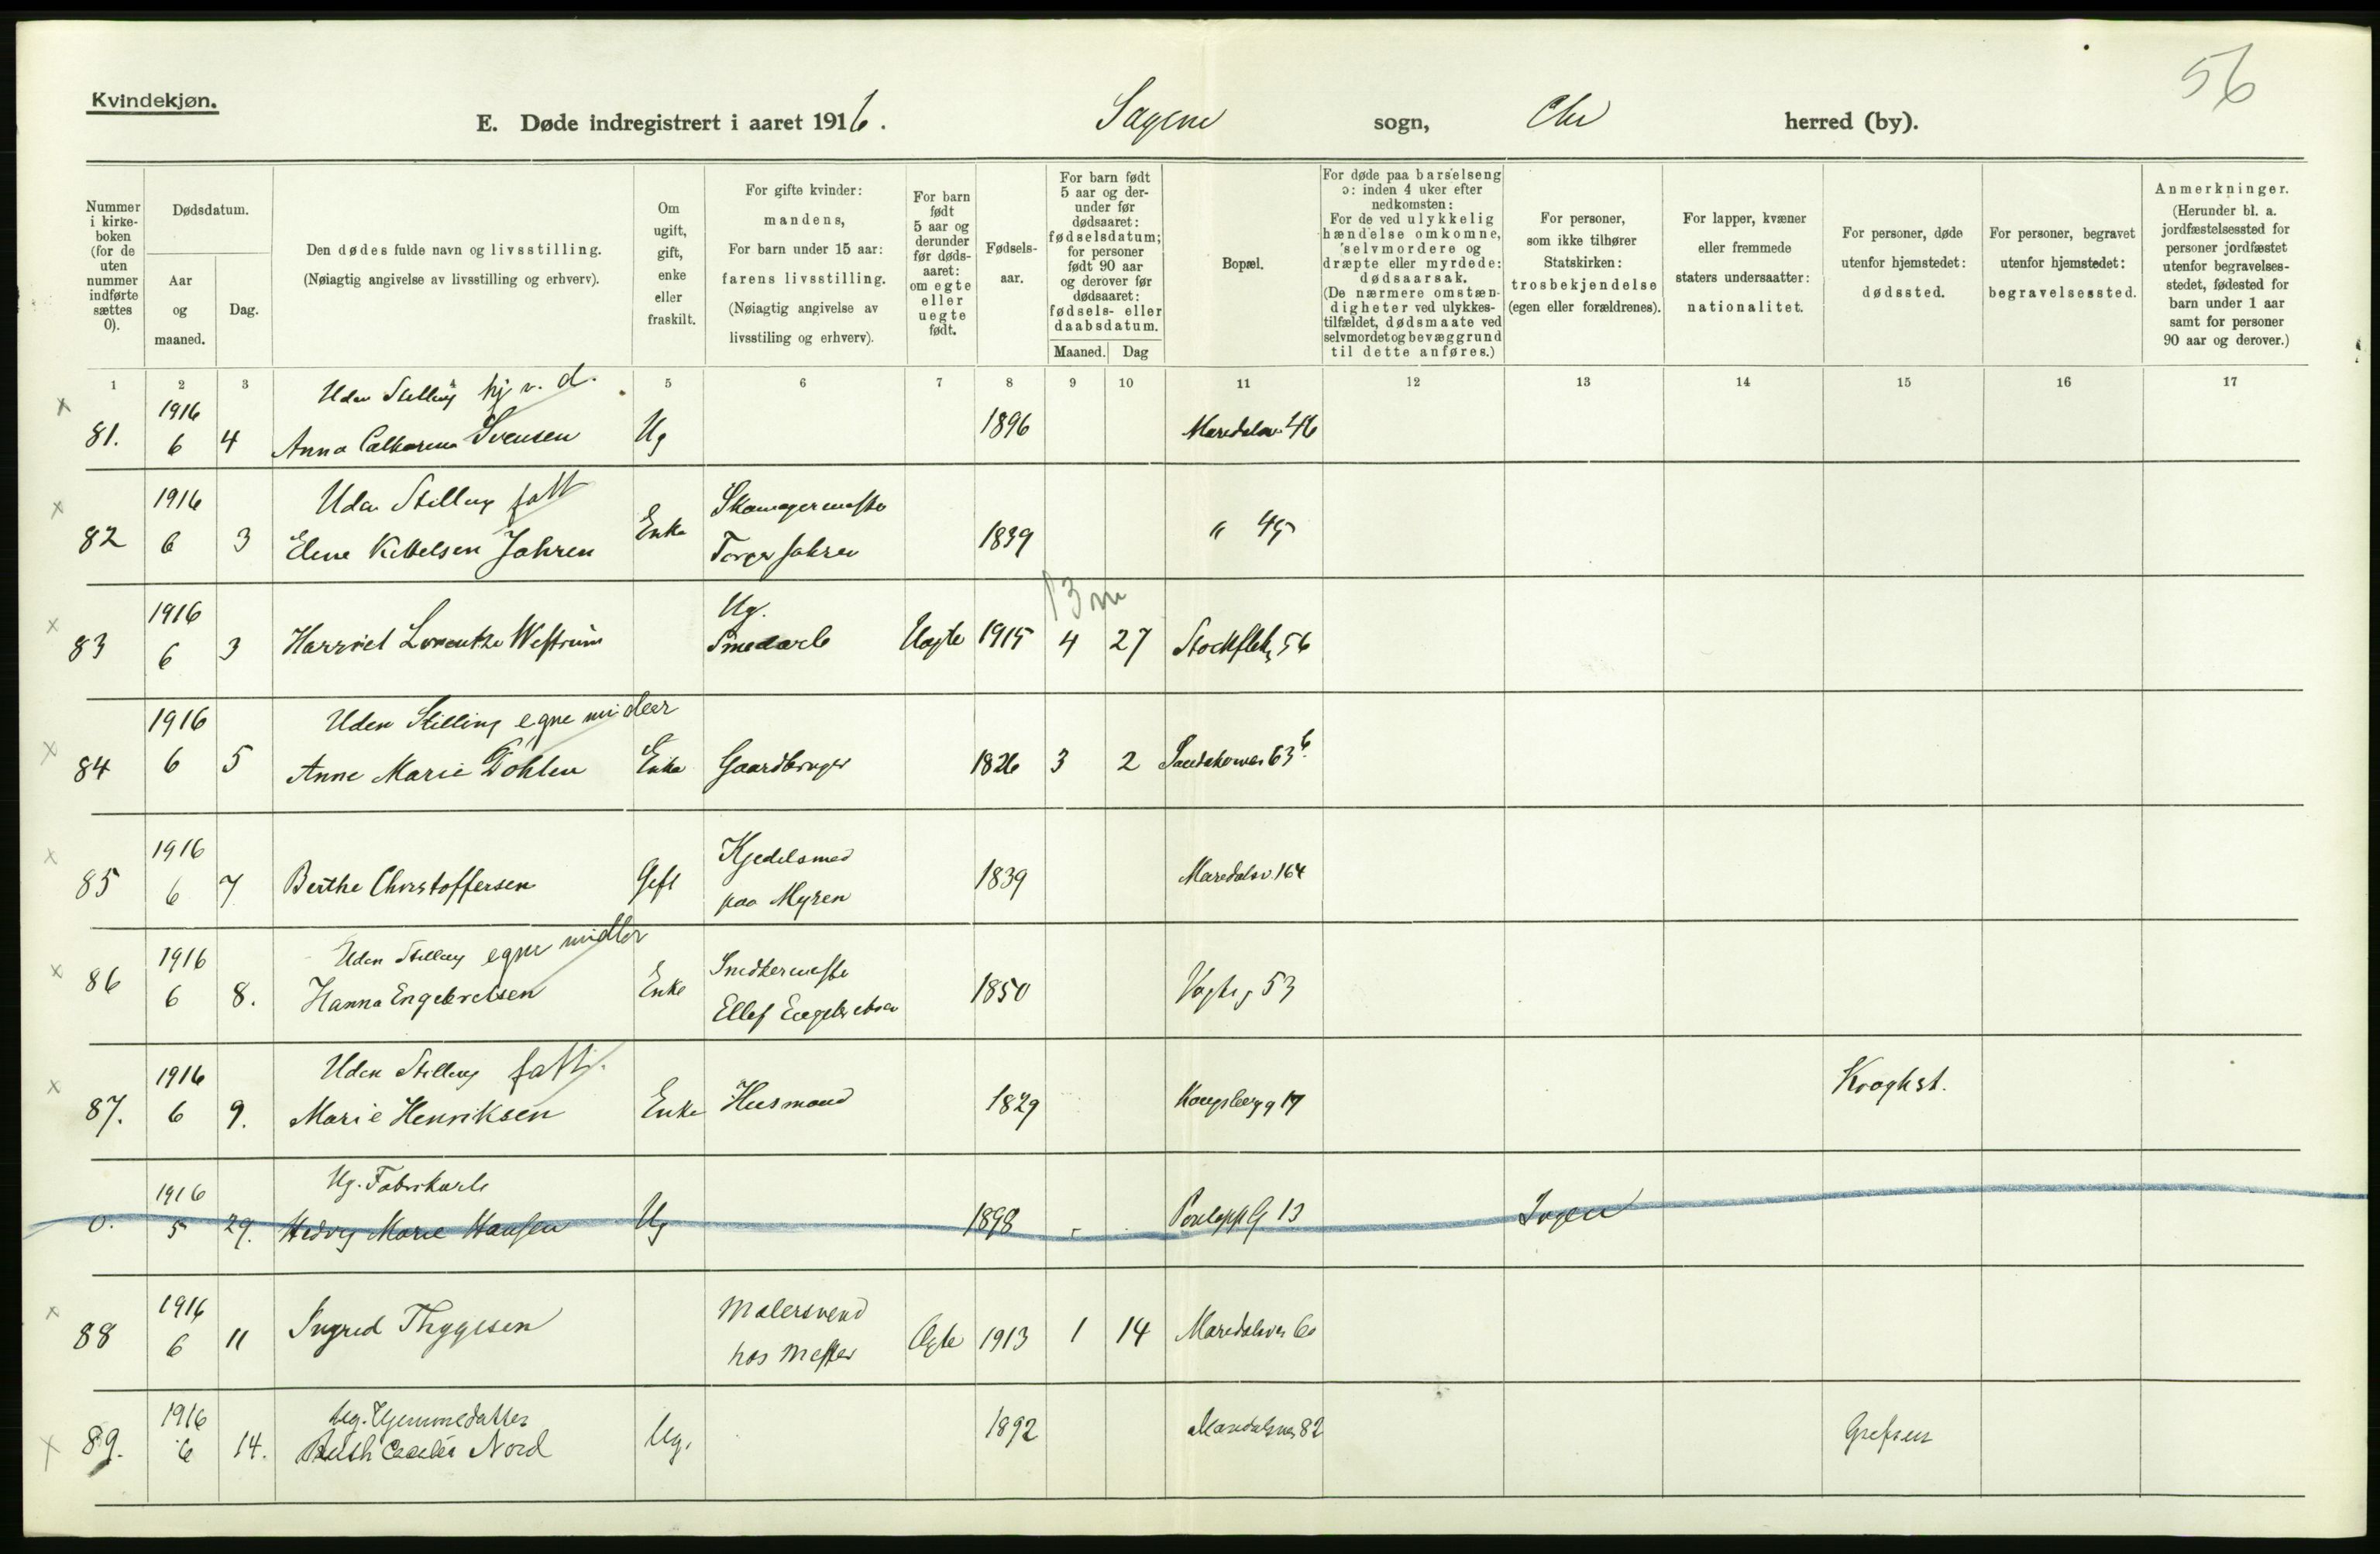 56
Kvindekjøn.
E. Døde indregistrert i aaret 1916. Sagene sogn, Chr herred (by).
Nummer i kirkeboken (for de uten nummer indførte sættes 0).
Dødsdatum.
Aar og maaned.
Dag.
Den dødes fulde navn og livsstilling.
(Nøiagtig angivelse av livsstilling og erhverv).
Om ugift, gift, enke eller fraskilt.
For gifte kvinder: mandens,
For barn under 15 aar: farens livsstilling.
(Nøiagtig angivelse av livsstiling og erhverv).
For barn født 5 aar og derunder før dødsaaret: om egte eller uegte født.
Fødselsaar.
For barn født 5 aar og derunder før dødsaaret: fødselsdatum; for personer født 90 aar og derover før dødsaaret: fødsels- eller daabsdatum.
Maaned. Dag
Bopæl.
For døde paa barselseng ɔ: inden 4 uker efter nedkomsten:
For de ved ulykkelig hændelse omkomne, selvmordere og dræpte eller myrdede: dødsaarsak.
(De nærmere omstændigheter ved ulykkestilfældet, dødsmaate ved selvmordet og bevæggrund til dette anføres.)
For personer, som ikke tilhører Statskirken: trosbekjendelse (egen eller forældrenes).
For lapper, kvæner eller fremmede staters undersaatter: nationalitet.
For personer, døde utenfor hjemstedet: dødssted.
For personer, begravet utenfor hjemstedet: begravelsessted.
Anmerkninger.
(Herunder bl. a. jordfæstelsessted for personer jordfæstet utenfor begravelsesstedet, fødested for barn under 1 aar samt for personer 90 aar og derover.)
1 2 3 5 6 7 8 9 10 11 12 13 14 15 16 17
Uden Stilling hj v. d.
x 81. 1916 6 4 Anna Catharina Svensen Ug 1896 Maridalsv. 46
Uden Stilling fatt
x 82 1916 6 3 Elene Kittelsen Jahren Enke Skomagermester Torger Jahren 1839 " 45
13 m
x 83 1916 6 3 Harriet Lorentze Westrum Ug. Smedarb Uegte 1915 4 27 Stockfletsg 56
Uden Stilling egne midler
x 84 1916 6 5 Anne Marie Døhlen Enke Gaardbruger 1826 3 2 Sandakerveien 63 b.
x 85 1916 6 7 Berthe Christoffersen Gift Kjedelsmed paa Myren 1839 Maridalsv. 164
Uden Stilling egne midler
x 86 1916 6 8. Hanna Engebretsen Enke Snedkermester Ellef Engebretsen 1850 Vogtsg 53
Uden Stilling fatt.
x 87. 1916 6 9. Marie Henriksen Enke Husmand 1829 Kongsbergg 17 Kroghst.
Ug. Fabrikarb
0. 1916 5 29. Hedvig Marie Hansen Ug 1898 13 Ingen
x 88 1916 6 11 Ingrid Thygesen Malersvend hos Mester Ægte 1913 1 14 Maridalsvn 60
Ug. Hjemmedatter
x 89. 1916 6 14. Ruth Cecilie Nord Ug. 1892 Maridalsvn 82 Grefsen